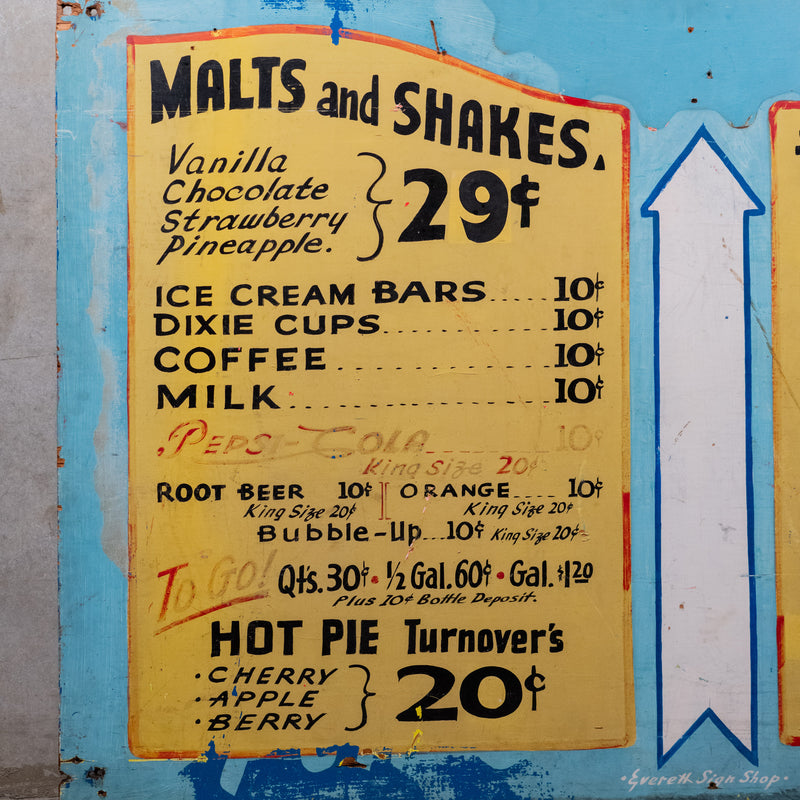 MALTS and SHAKES.
Vanilla
Chocolate
Strawberry
Pineapple.
29¢
ICE CREAM BARS..... 10¢
DIXIE CUPS.................. 10¢
COFFEE.................. 10¢
MILK........................ 10¢
PEPSI-COLA............ 10¢
King Size 20¢
ROOT BEER 10¢ ORANGE.... 10¢
King Size 20¢ King Size 20¢
Bubble-Up...10¢ King Size 20¢
"To Go! Qts. 30¢ • ½ Gal. 60¢ • Gal. $1.20
Plus 10¢ Bottle Deposit.
HOT PIE Turnover's
• CHERRY
• APPLE
• BERRY
20¢
• Everett Sign Shop •